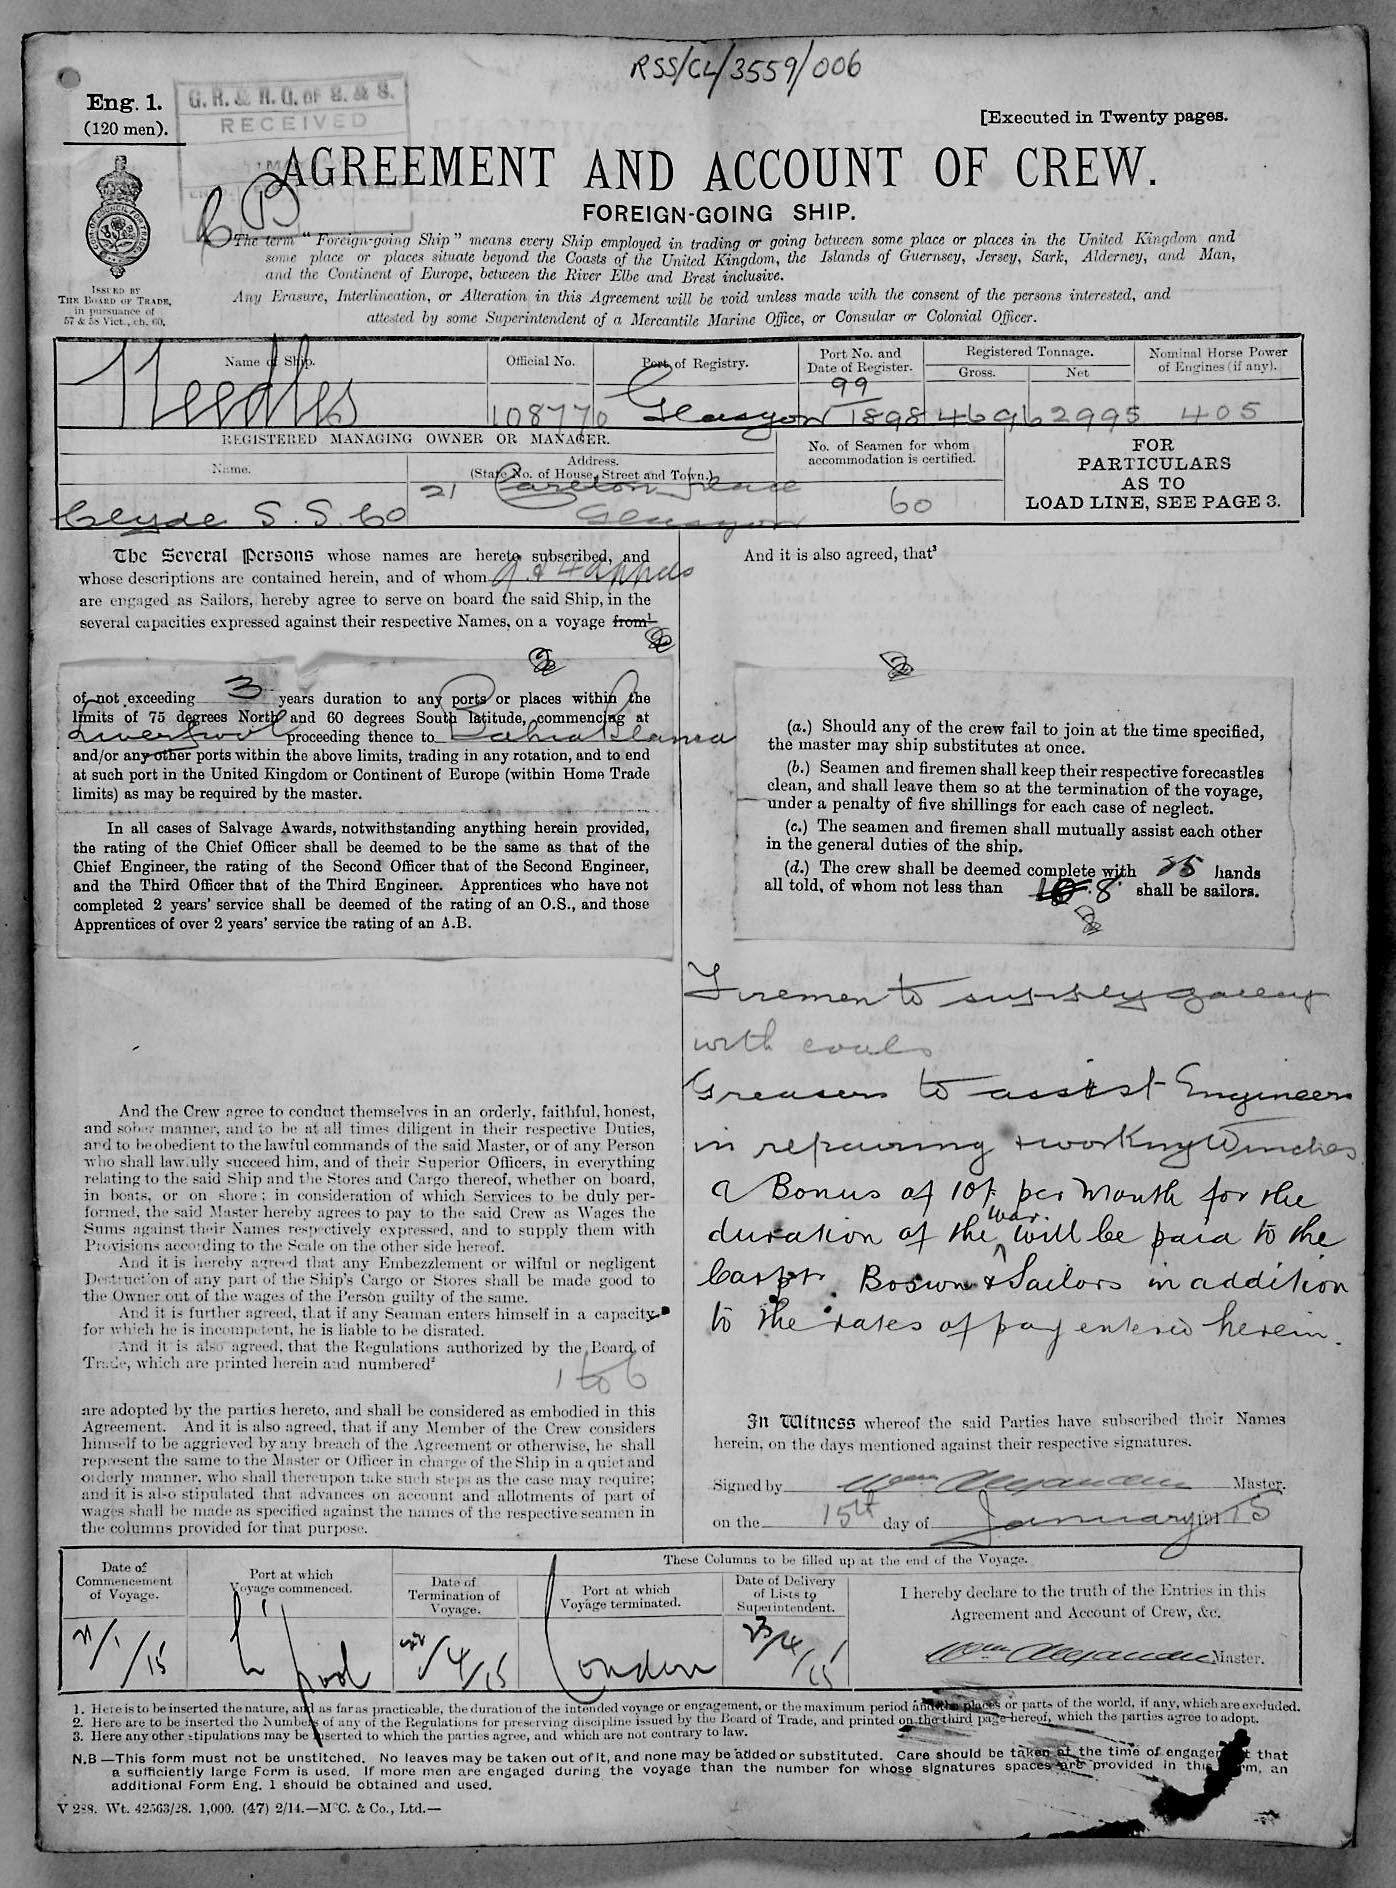 RSS/CL/3559/006
Eng. 1.
(120 men).
G. R. & R. O. OF S. & S.
RECEIVED
[Executed in Twenty pages.
AGREEMENT AND ACCOUNT OF CREW.
FOREIGN-GOING SHIP.
The term "Foreign-going Ship" means every Ship employed in trading or going between some place or places in the United Kingdom and
some place or places situate beyond the Coasts of the United Kingdom, the Islands of Guernsey, Jersey, Sark, Alderney, and Man,
and the Continent of Europe, between the River Elbe and Brest inclusive.
Any Erasure, Interlineation, or Alteration in this Agreement will be void unless made with the consent of the persons interested, and
attested by some Superintendent of a Mercantile Marine Office, or Consular or Colonial Officer.
ISSUED BY
THE BOARD OF TRADE,
in pursuance of
57 & 58 Vict., ch. 60.
Name of Ship. Official No. Port of Registry. Port No. and Date of Register. Registered Tonnage. Gross. Net Nominal Horse Power of Engines (if any).
Needles 108770 Glasgow 99/1898 4696 2995 405
REGISTERED MANAGING OWNER OR MANAGER.
Name. Address. (State No. of House, Street and Town.) No. of Seamen for whom accommodation is certified.
Clyde S. S. Co 21 Carlton Place Glasgow 60
FOR
PARTICULARS
AS TO
LOAD LINE, SEE PAGE 3.
The Several Persons whose names are hereto subscribed, and
whose descriptions are contained herein, and of whom 9 & 4 apps
are engaged as Sailors, hereby agree to serve on board the said Ship, in the
several capacities expressed against their respective Names, on a voyage from¹
of not exceeding 3 years duration to any ports or places within the
limits of 75 degrees North and 60 degrees South latitude, commencing at
Liverpool proceeding thence to Bahia Blanca
and/or any other ports within the above limits, trading in any rotation, and to end
at such port in the United Kingdom or Continent of Europe (within Home Trade
limits) as may be required by the master.
In all cases of Salvage Awards, notwithstanding anything herein provided,
the rating of the Chief Officer shall be deemed to be the same as that of the
Chief Engineer, the rating of the Second Officer that of the Second Engineer,
and the Third Officer that of the Third Engineer. Apprentices who have not
completed 2 years' service shall be deemed of the rating of an O.S., and those
Apprentices of over 2 years' service the rating of an A.B.
And the Crew agree to conduct themselves in an orderly, faithful, honest,
and sober manner, and to be at all times diligent in their respective Duties,
and to be obedient to the lawful commands of the said Master, or of any Person
who shall lawfully succeed him, and of their Superior Officers, in everything
relating to the said Ship and the Stores and Cargo thereof, whether on board,
in boats, or on shore; in consideration of which Services to be duly per-
formed, the said Master hereby agrees to pay to the said Crew as Wages the
Sums against their Names respectively expressed, and to supply them with
Provisions according to the Scale on the other side hereof.
And it is hereby agreed that any Embezzlement or wilful or negligent
Destruction of any part of the Ship's Cargo or Stores shall be made good to
the Owner out of the wages of the Person guilty of the same.
And it is further agreed, that if any Seaman enters himself in a capacity
for which he is incompetent, he is liable to be disrated.
And it is also agreed, that the Regulations authorized by the Board of
Trade, which are printed herein and numbered²
1 to 6
are adopted by the parties hereto, and shall be considered as embodied in this
Agreement. And it is also agreed, that if any Member of the Crew considers
himself to be aggrieved by any breach of the Agreement or otherwise, he shall
represent the same to the Master or Officer in charge of the Ship in a quiet and
orderly manner, who shall thereupon take such steps as the case may require;
and it is also stipulated that advances on account and allotments of part of
wages shall be made as specified against the names of the respective seamen in
the columns provided for that purpose.
And it is also agreed, that³
(a.) Should any of the crew fail to join at the time specified,
the master may ship substitutes at once.
(b.) Seamen and firemen shall keep their respective forecastles
clean, and shall leave them so at the termination of the voyage,
under a penalty of five shillings for each case of neglect.
(c.) The seamen and firemen shall mutually assist each other
in the general duties of the ship.
(d.) The crew shall be deemed complete with 35 hands
all told, of whom not less than 8 shall be sailors.
Firemen to supply galley
with coals
Greasers to assist Engineers
in repairing & working Winches
A Bonus of 10/- per Month for the
duration of the war will be paid to the
Carptr. Bosun & Sailors in addition
to the rates of pay entered herein.
In Witness whereof the said Parties have subscribed their Names
herein, on the days mentioned against their respective signatures.
Signed by Wm Alexander Master.
on the 15th day of January 1915
Date of Commencement of Voyage. Port at which Voyage commenced. Date of Termination of Voyage. Port at which Voyage terminated. Date of Delivery of Lists to Superintendent.
These Columns to be filled up at the end of the Voyage.
I hereby declare to the truth of the Entries in this
Agreement and Account of Crew, &c.
21/1/15 L'pool 22/4/15 London 23/4/15 Wm Alexander Master.
1. Here is to be inserted the nature, and as far as practicable, the duration of the intended voyage or engagement, or the maximum period and the places or parts of the world, if any, which are excluded.
2. Here are to be inserted the Numbers of any of the Regulations for preserving discipline issued by the Board of Trade, and printed on the third page hereof, which the parties agree to adopt.
3. Here any other stipulations may be inserted to which the parties agree, and which are not contrary to law.
N.B—This form must not be unstitched. No leaves may be taken out of it, and none may be added or substituted. Care should be taken at the time of engagement that
a sufficiently large Form is used. If more men are engaged during the voyage than the number for whose signatures spaces are provided in this form, an
additional Form Eng. 1 should be obtained and used.
V 288. Wt. 42563/28. 1,000. (47) 2/14.—McC. & Co., Ltd.—